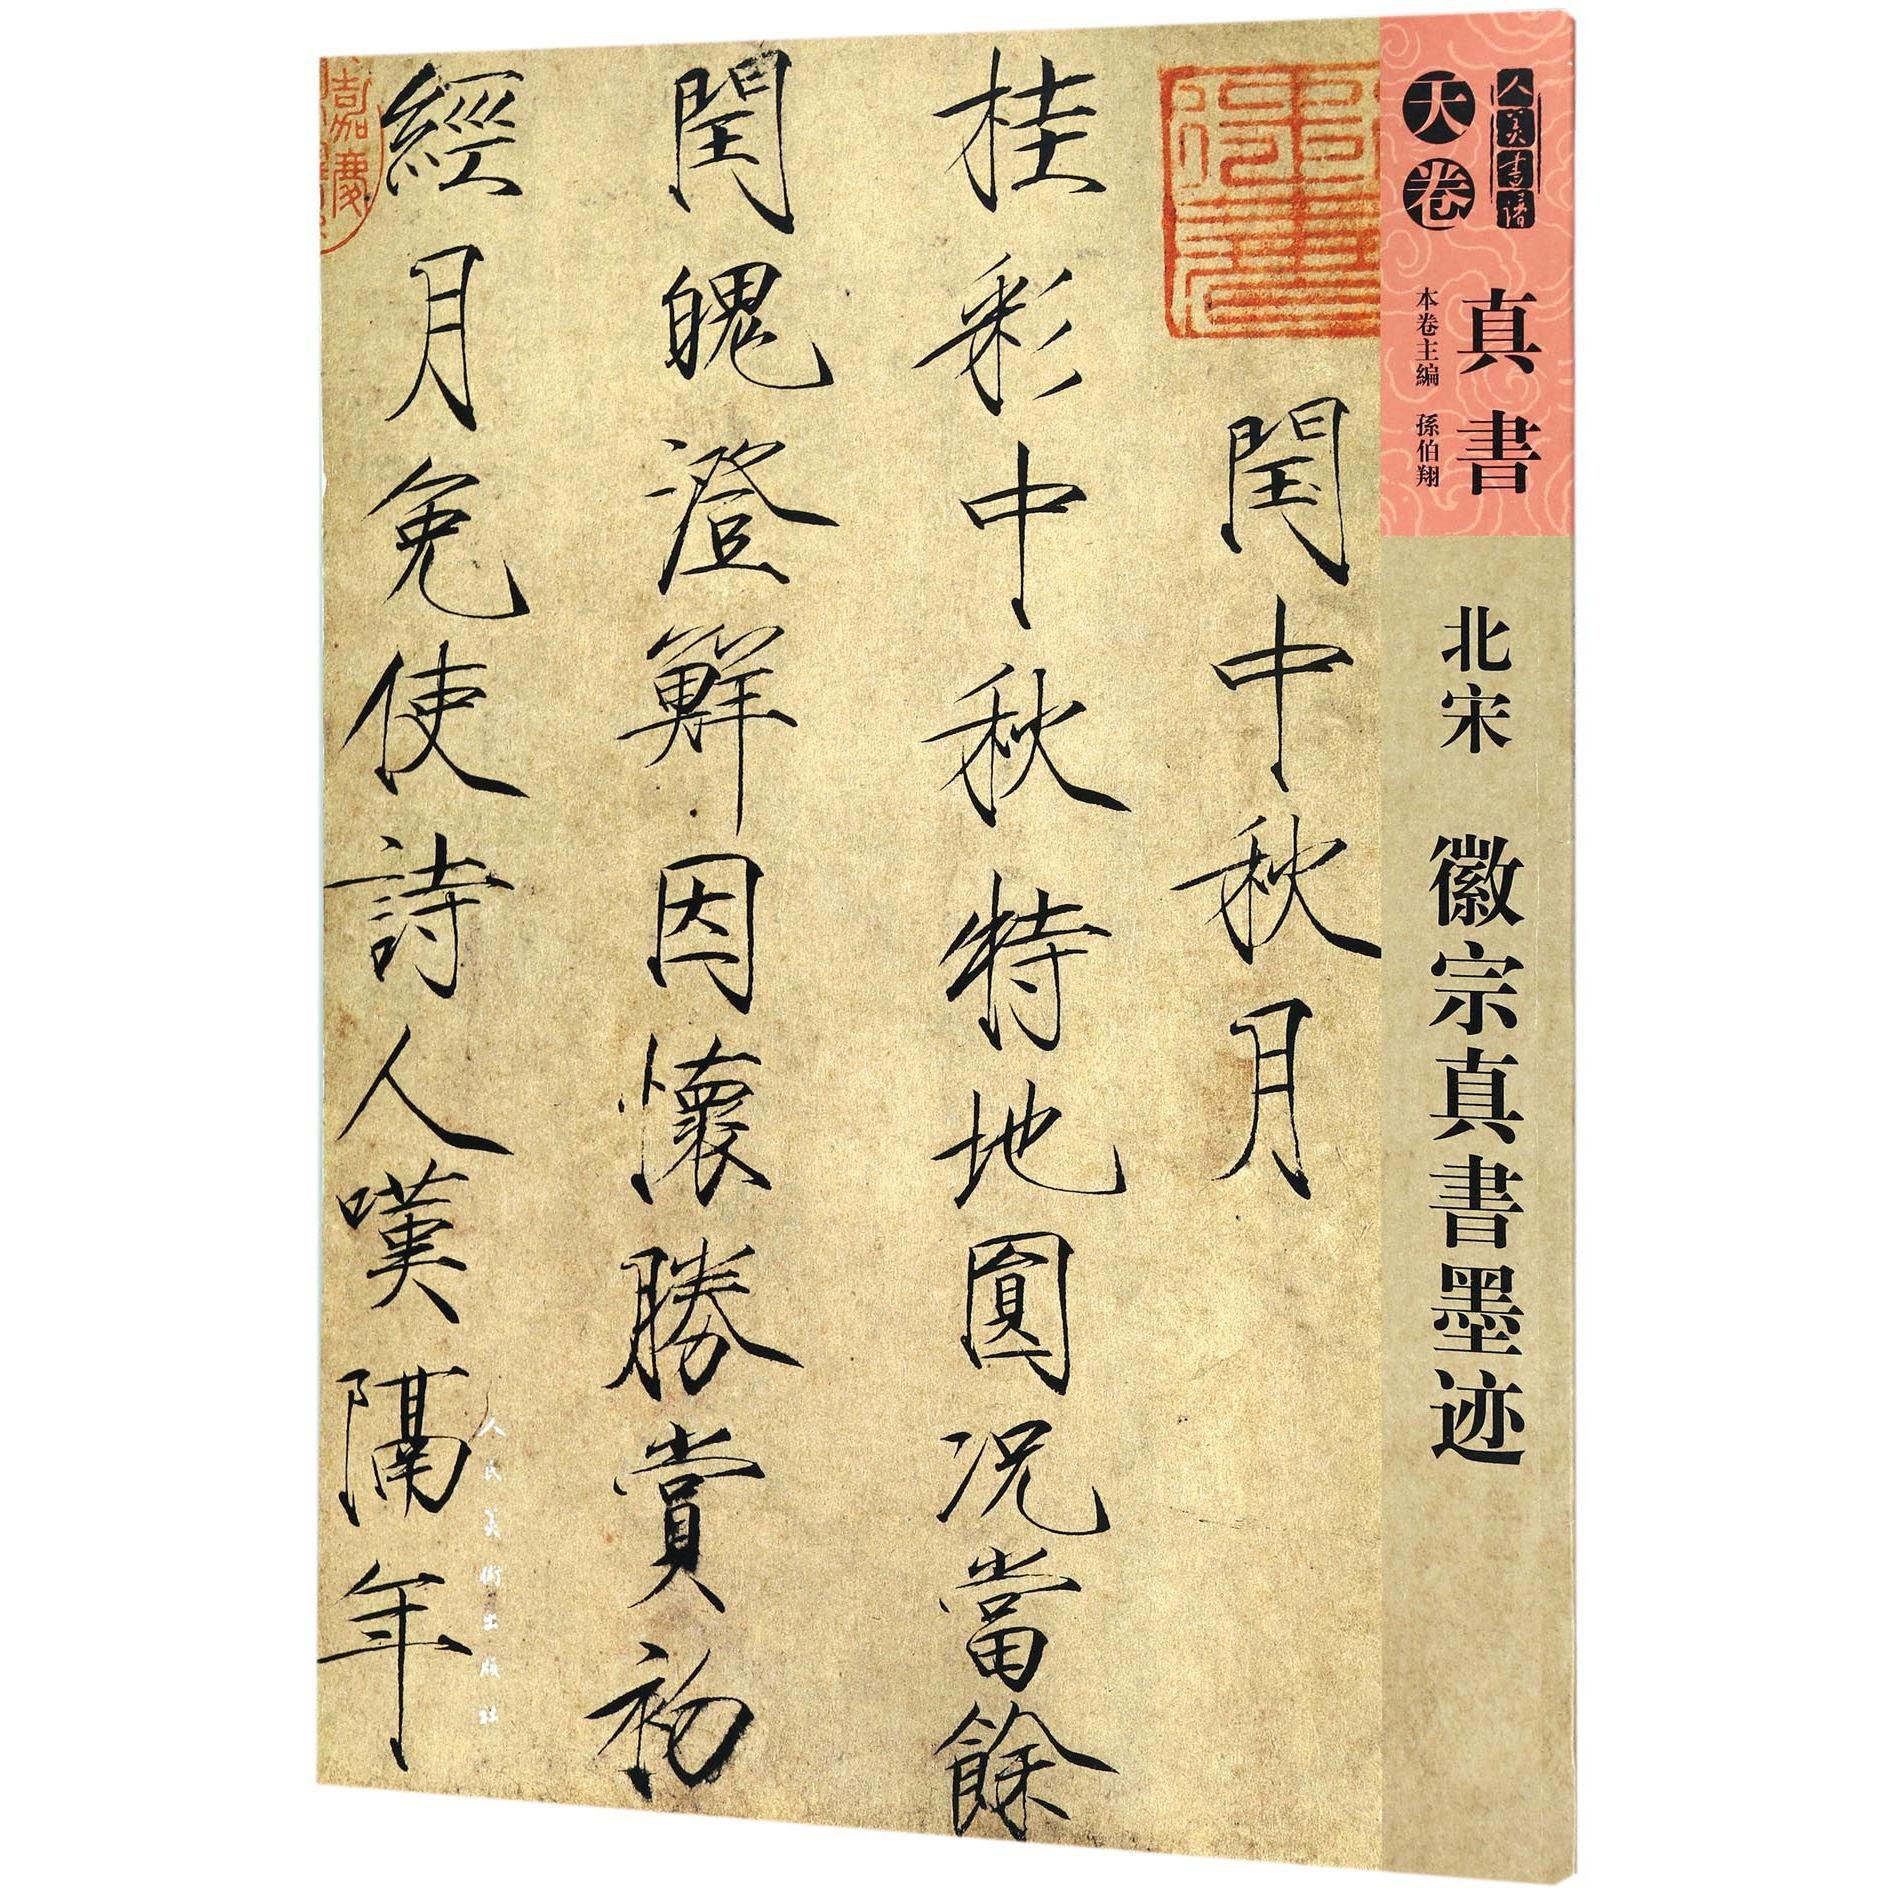 人美書譜
天卷
真書
本卷主編 孫伯翔
北宋 徽宗真書墨迹
閏中秋月
桂彩中秋特地圓况當餘
閏魄澄鮮因懷勝賞初
經月免使詩人嘆隔年
嘉慶
人民美術出版社